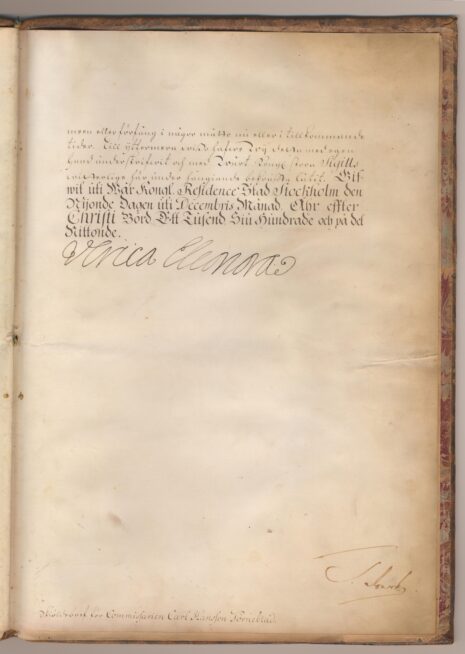 meen eller förfång i någor måtto nu eller i tillkommande
tider. Till yttermera wisso hafwe Wij detta med egen
hand underskrifwit och med Wårt Kongl. stora Sigills
witterlige här under hängiande bekräfta låtit. Gif-
wit uti Wår Kongl. Residence Stad Stockholm den
Nijonde Dagen uti Decembris Månad, Åhr effter
Christi Börd Ett Tusend Siu Hundrade och på det
Nittonde.
Ulrica Eleonora
Sköldebref för Commissarien Carl Hansson Törnebrad.